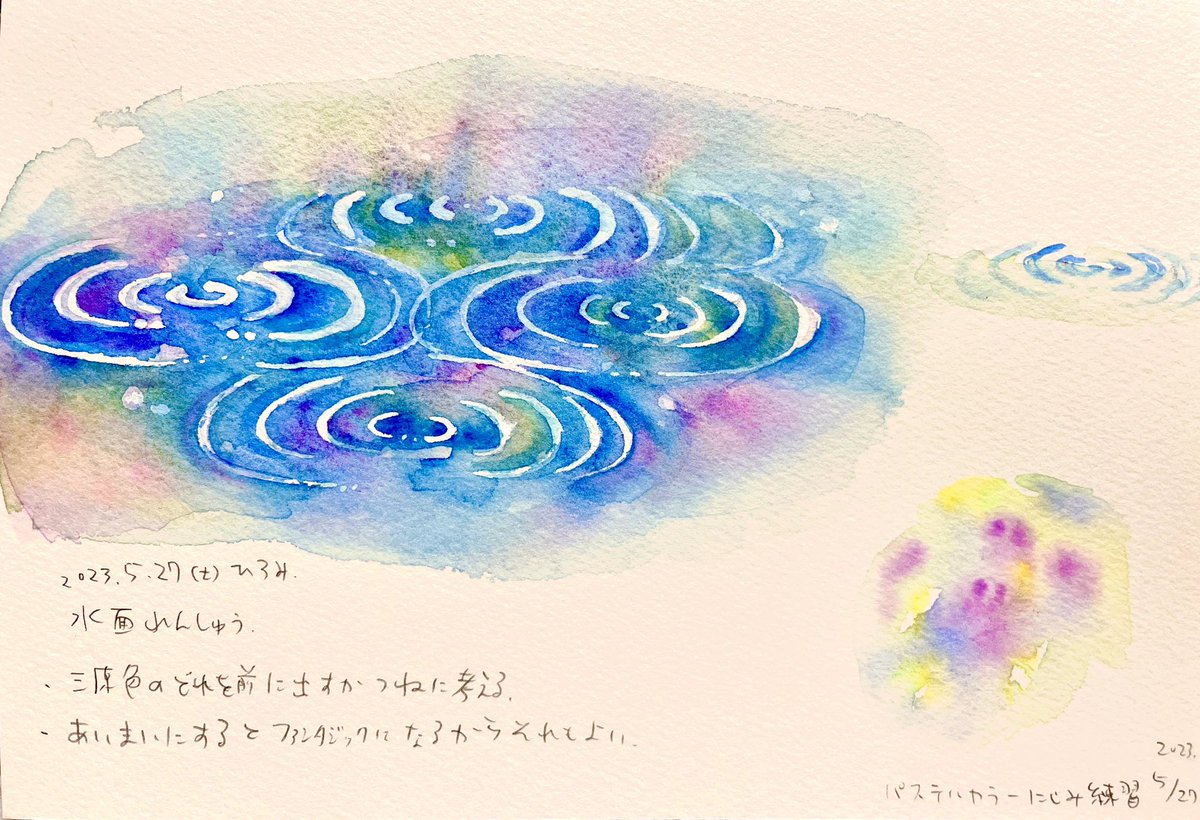 2023.5.27(土)ひろみ.
水面れんしゅう.
・三原色のどれを前に出すかつねに考える.
・あいまいにするとファンタジックになるからそれもよい.
2023.
パステルカラーにじみ練習 5/27